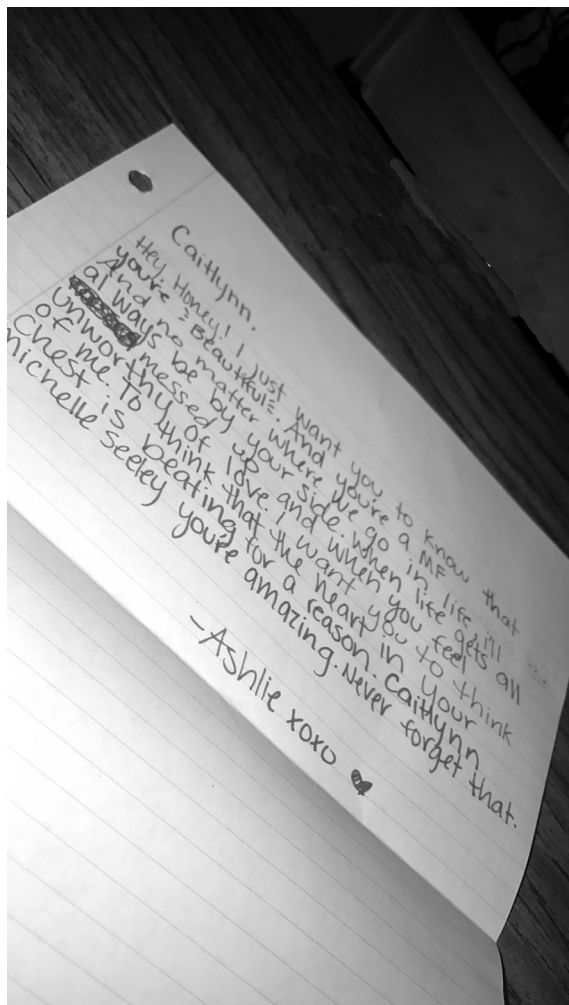 Caitlynn.
Hey, Honey! I just want you to know that
you're =Beautiful=. And you're a MF
And no matter where we go in life i'll
always be by your side. When life gets all
messed up and when you feel
unworthy of love. I want you to think
of me. To think that the heart in your
chest is beating for a reason. Caitlynn
michelle seeley you're amazing. Never forget that.
-Ashlie xoxo